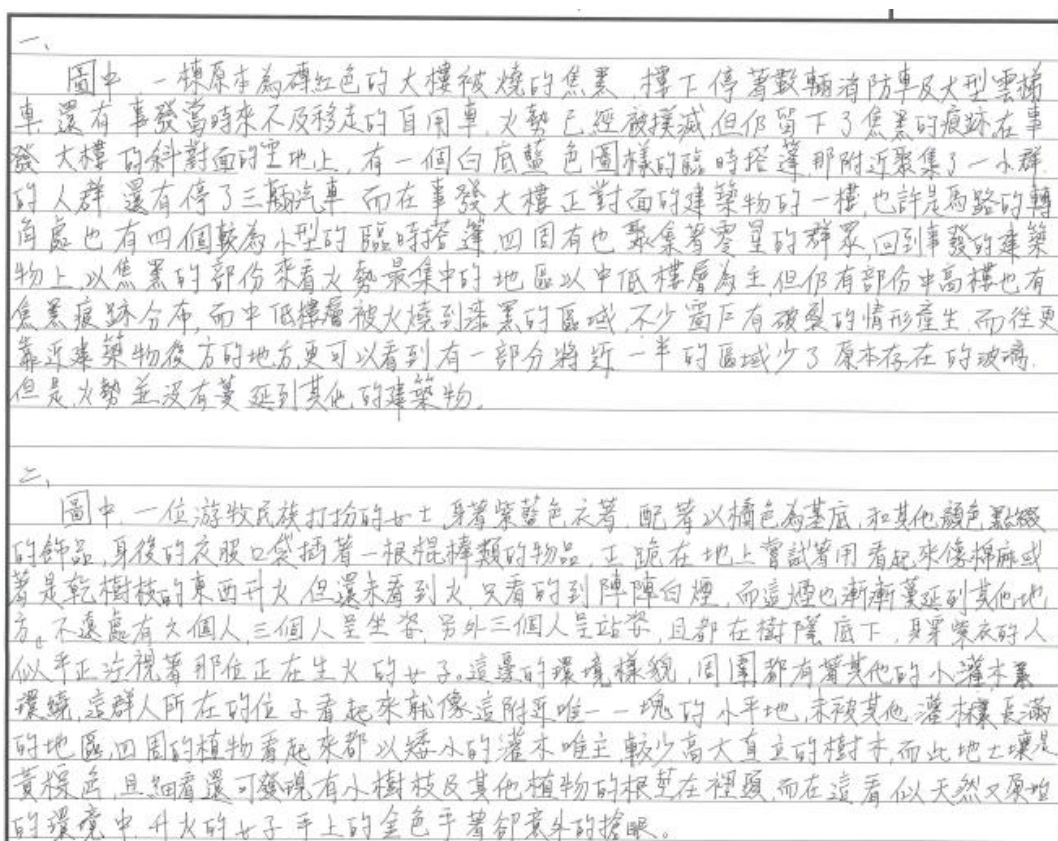 一、
圖中,一棟原本為磚紅色的大樓被燒的焦黑,樓下停著數輛消防車及大型雲梯
車,還有事發當時來不及移走的自用車,火勢已經被撲滅,但仍留下了焦黑的痕跡,在事
發大樓的斜對面的空地上,有一個白底藍色圖樣的臨時搭蓬,那附近聚集了一小群
的人群,還有停了三輛汽車,而在事發大樓正對面的建築物的一樓也許是馬路的轉
角處也有四個較為小型的臨時搭蓬,四周有也聚集著零星的群眾,回到事發的建築
物上,以焦黑的部份來看火勢最集中的地區以中低樓層為主,但仍有部份中高樓也有
焦黑痕跡分布,而中低樓層被火燒到漆黑的區域,不少窗戶有破裂的情形產生,而往更
靠近建築物後方的地方,更可以看到有一部分將近一半的區域少了原本存在的玻璃,
但是,火勢並沒有蔓延到其他的建築物。
二、
圖中,一位游牧民族打扮的女士,身著紫藍色衣著,配著以橘色為基底,和其他顏色點綴
的飾品,身後的衣服口袋插著一根棍棒類的物品,正跪在地上嘗試著用看起來像棉麻或
著是乾樹枝的東西升火,但還未看到火,只看的到陣陣白煙,而這煙也漸漸蔓延到其他地
方。不遠處有六個人,三個人呈坐姿,另外三個人呈站姿,且都在樹蔭底下,身穿紫衣的人
似乎正注視著那位正在生火的女子。這邊的環境樣貌,周圍都有著其他的小灌木叢
環繞,這群人所在的位子看起來就像這附近唯一一塊的小平地,未被其他灌木叢長滿
的地區,四周的植物看起來都以矮小的灌木唯主,較少高大直立的樹木,而此地土壤是
黃棕色,且細看還可發現有小樹枝及其他植物的根莖在裡頭,而在這看似天然又原始
的環境中,升火的女子手上的金色手著卻意外的搶眼。